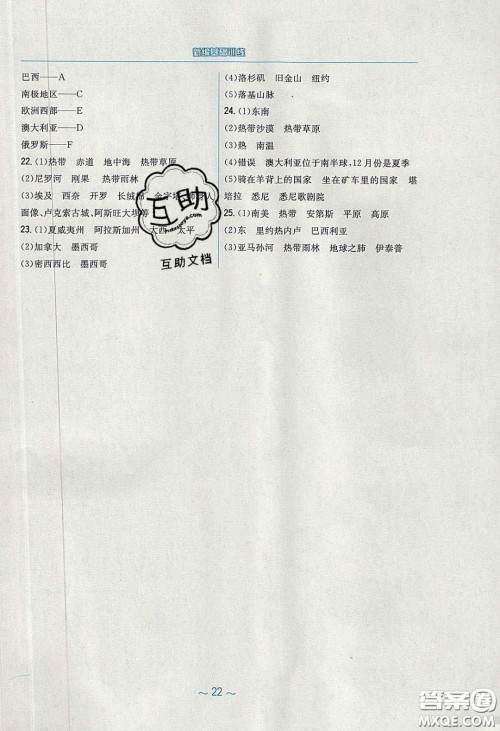 新编基础训练
巴西——A
南极地区——C
欧洲西部——E
澳大利亚——D
俄罗斯——F
22. (1)热带 赤道 地中海 热带草原
(2)尼罗河 刚果 热带雨林
(3)埃及 西奈 开罗 长绒棉 金字塔
面像、卢克索古城、阿斯旺大坝等
23. (1)夏威夷州 阿拉斯加州 大西 太平
(2)加拿大 墨西哥
(3)密西西比 墨西哥
(4)洛杉矶 旧金山 纽约
(5)落基山脉
24. (1)东南
(2)热带沙漠 热带草原
(3)热 南温
(4)错误 澳大利亚位于南半球,12月份是夏季
(5)骑在羊背上的国家 坐在矿车里的国家 堪
培拉 悉尼 悉尼歌剧院
25. (1)南美 热带 安第斯 平原 高原
(2)东 里约热内卢 巴西利亚
(3)亚马孙河 热带雨林 地球之肺 伊泰普
互助
互助文档
～ 22 ～
答案圈
MXQE.COM